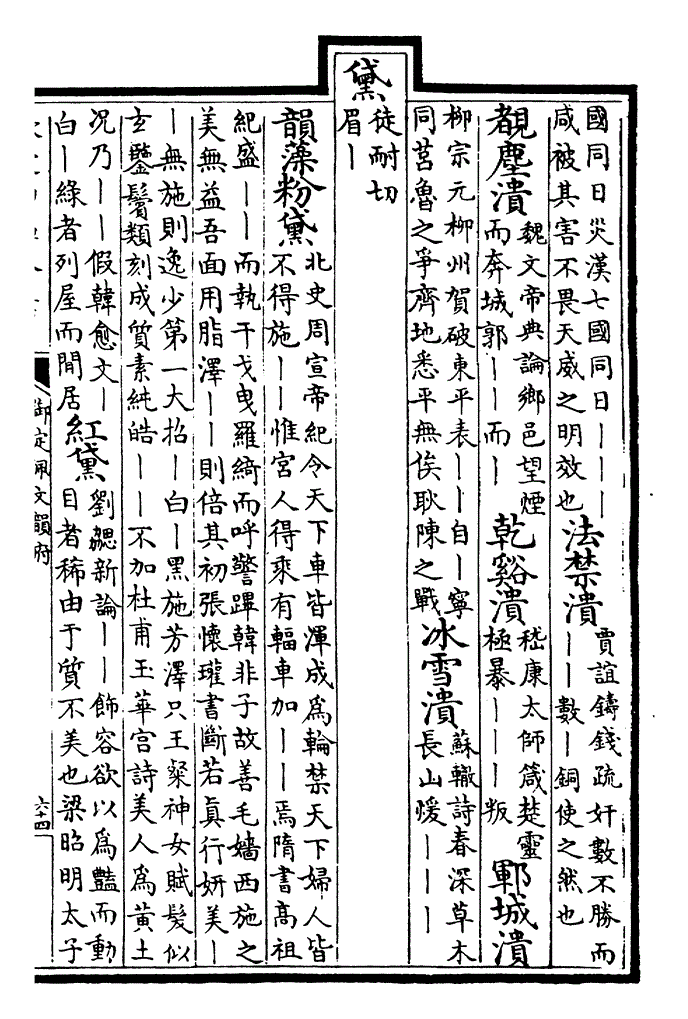 國同日災漢七國同日｜｜｜法禁潰賈誼鑄錢疏奸數不勝而
咸被其害不畏天威之明效也｜｜數｜銅使之然也
覩塵潰魏文帝典論鄉邑望煙乾谿潰嵇康太師箴楚靈鄆城潰
而奔城郭｜｜而｜極暴｜｜｜叛
柳宗元柳州賀破東平表｜｜自｜寧冰雪潰蘇轍詩春深草木
同莒魯之爭齊地悉平無俟耿陳之戰長山煖｜｜｜
黛徒耐切
眉｜
韻藻粉黛北史周宣帝紀令天下車皆渾成為輪禁天下婦人皆
不得施｜｜惟宮人得乘有輻車加｜｜焉隋書高祖
紀盛｜｜而執干戈曳羅綺而呼警蹕韓非子故善毛嬙西施之
美無益吾面用脂澤｜｜則倍其初張懷瓘書斷若真行妍美｜
｜無施則逸少第一大招｜白｜黑施芳澤只王粲神女賦髮似
玄鑒鬢類刻成質素純皓｜｜不加杜甫玉華宮詩美人為黃土
况乃｜｜假韓愈文｜紅黛劉勰新論｜｜飾容欲以為豔而動
白｜綠者列屋而間居目者稀由于質不美也梁昭明太子
御定佩文韻府
六十四